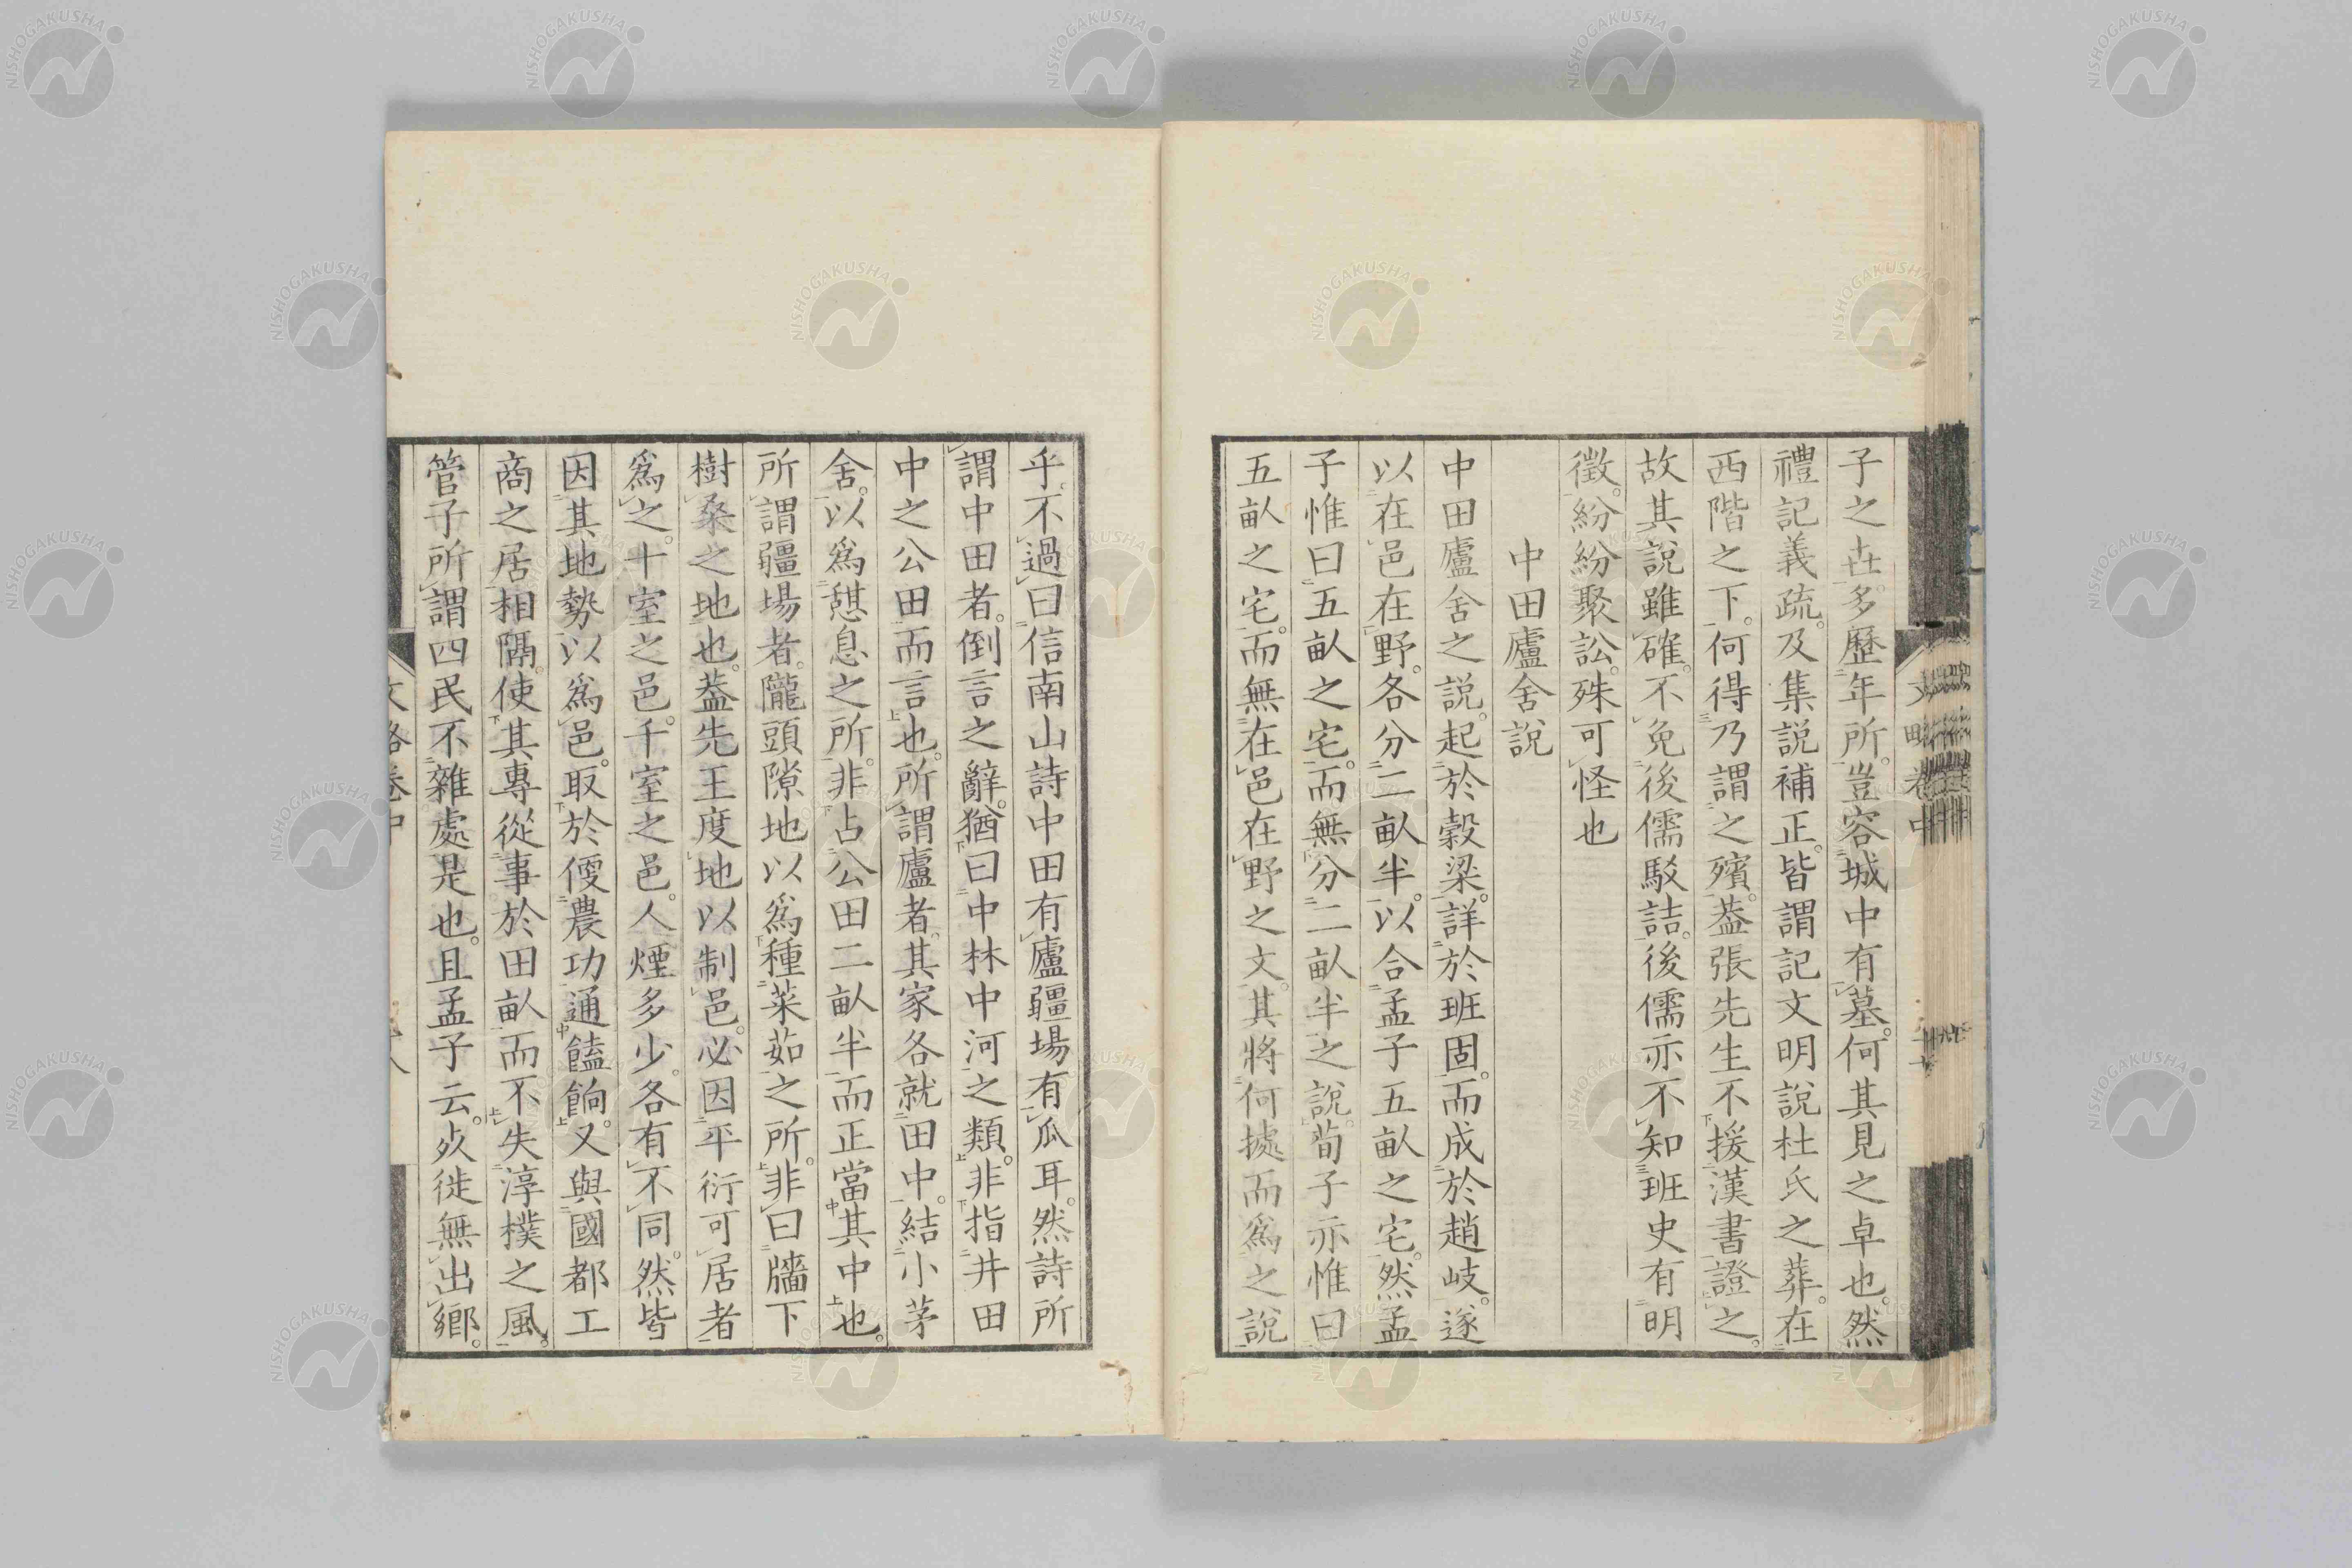 子之世。多歷年所。豈容城中有墓。何其見之卓也。然
禮記義疏。及集説補正。皆謂記文明説杜氏之葬。在
西階之下。何得乃謂之殯。葢張先生不援漢書證之。
故其說雖確。不免後儒駁詰。後儒亦不知班史有明
徵。紛紛聚訟。殊可怪也
中田廬舍說
中田廬舍之説。起於穀梁。詳於班固。而成於趙岐。遂
以在邑在野。各分二畝半。以合孟子五畝之宅。然孟
子惟曰五畝之宅。而無分二畝半之說。荀子亦惟曰
五畝之宅。而無在邑在野之文。其將何據而爲之說
乎。不過曰信南山詩中田有廬疆場有瓜耳。然詩所
謂中田者。倒言之辭。猶曰中林中河之類。非指井田
中之公田而言也。所謂廬者。其家各就田中。結小茅
舍。以爲憩息之所。非占公田二畝半而正當其中也。
所謂疆場者。隴頭隙地以爲種菜茹之所。非曰牆下
樹桑之地也。葢先王度地以制邑。必因平衍可居者
爲之。十室之邑。千室之邑。人煙多少。各有不同。然皆
因其地勢以爲邑。取於便農功通饁餉。又與國都工
商之居相隔。使其專從事於田畝而不失淳樸之風。
管子所謂四民不雜處是也。且孟子云。死徙無出鄉。
文略卷中
NISHOGAKUSHA